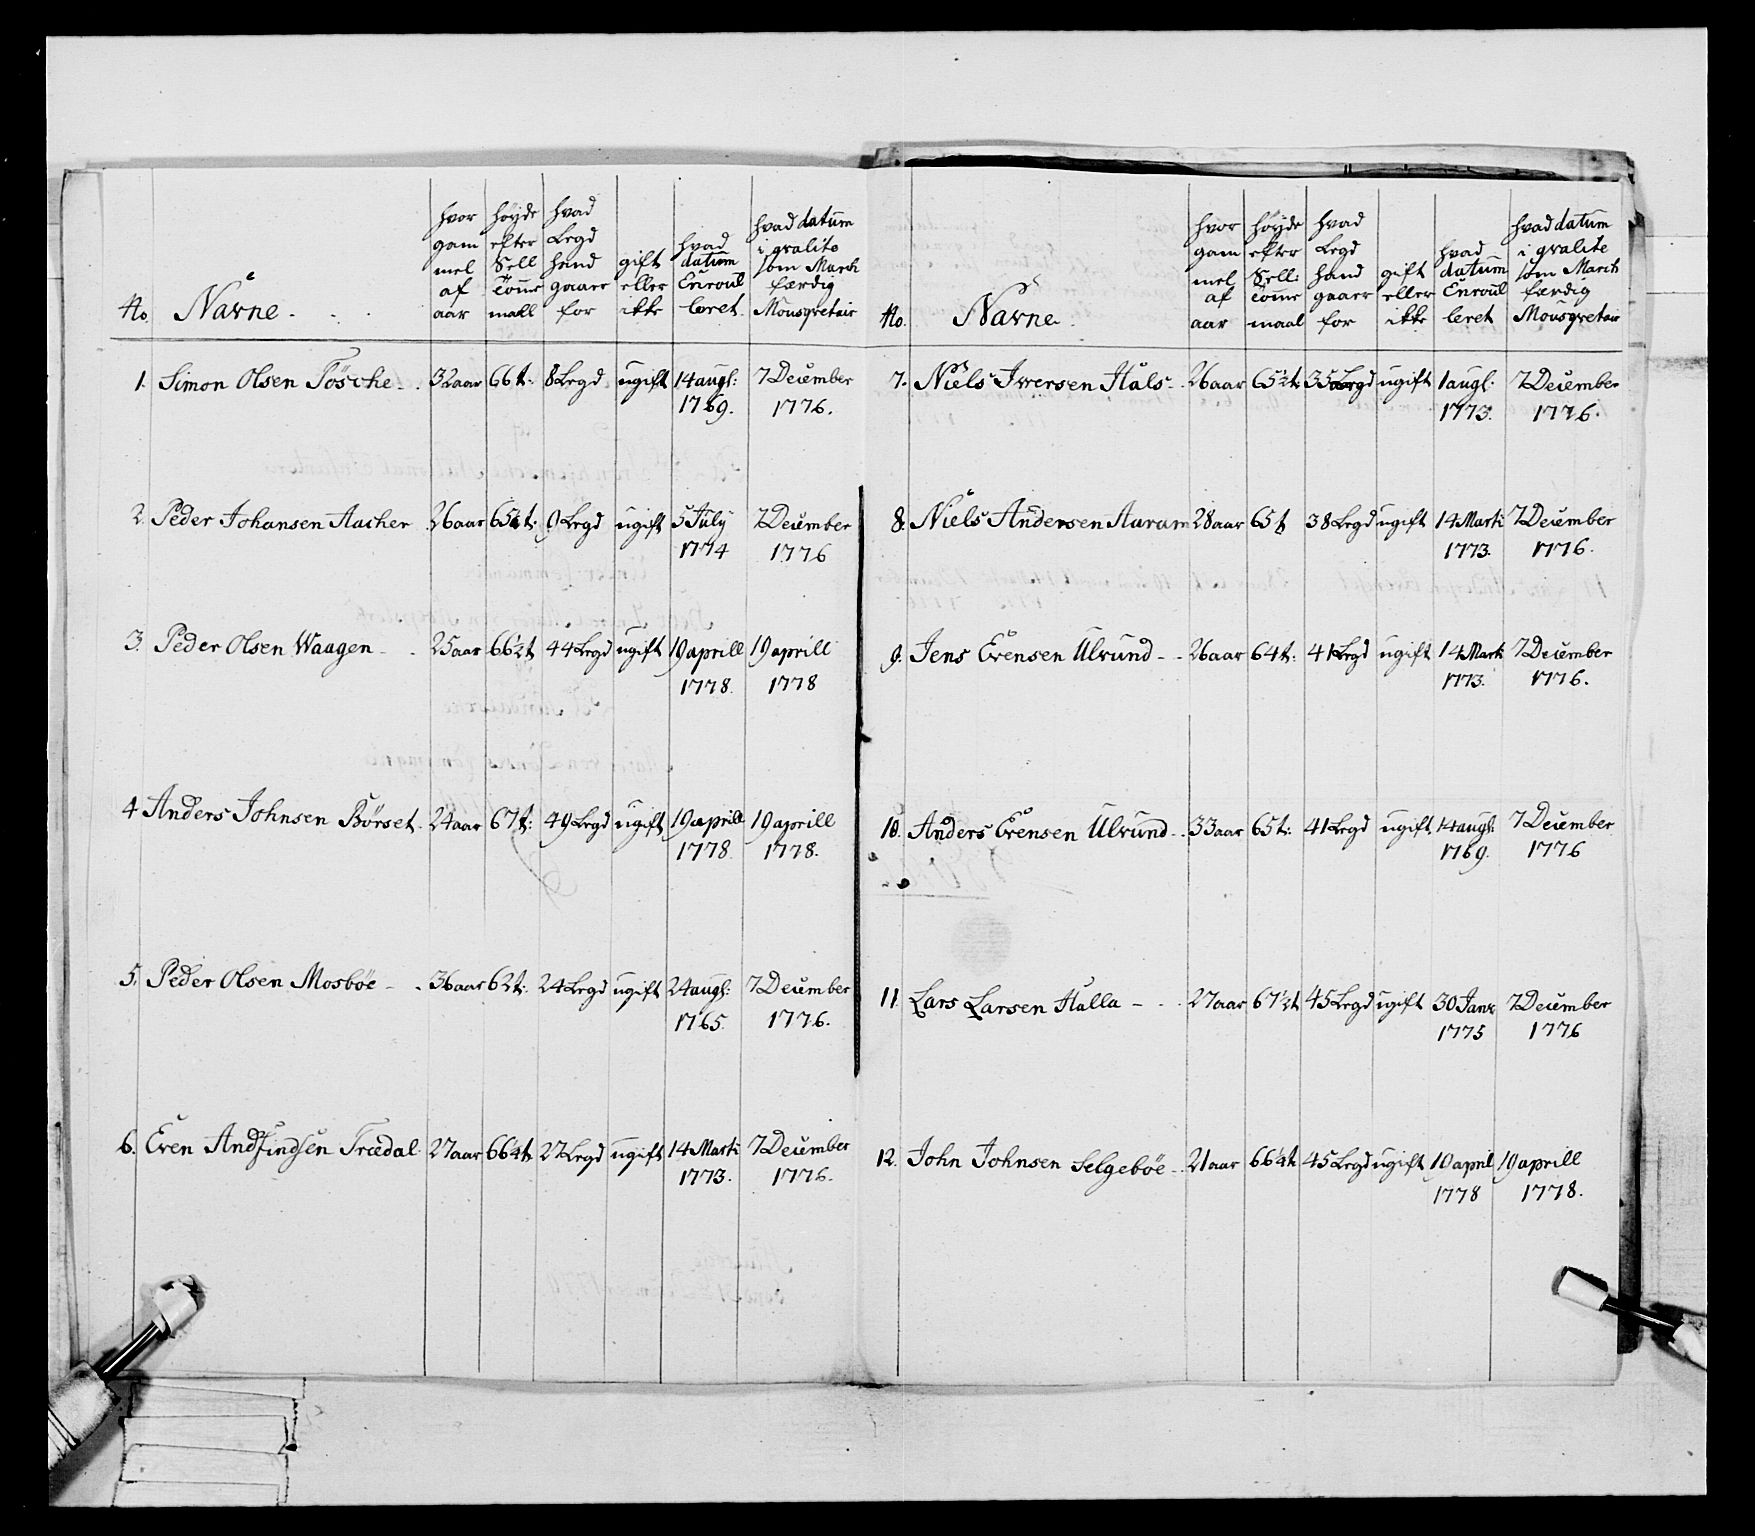 No. Navne.
hvor gam mel af aar
höyde efter Sell Tomme maall
hvad Legd hand gaaer for
gift eller ikke
hvad datum Enroul leret
hvad datum i qvalite som March færdig Mousqvetair
1. Simon Olsen 32 aar 66 t. 8 Legd ugift 14 augl: 7 December
1769. 1776.
2. Peder Johansen Aacher 26 aar 9 Legd ugift 5 July 7 December
1774 1776
3. Peder Olsen Waagen 25 aar 66½ t 44 Legd ugift 19 aprill 19 aprill
1778. 1778
4 Anders Johnsen Börset 24 aar 67 t: 49 Legd ugift 19 aprill 19 aprill
1778. 1778.
5. Peder Olsen Mosböe 36 aar 62 t: 24 Legd ugift 24 augl: 7 December
1765. 1776.
6. Even Andfindsen Trædal 27 aar 27 Legd ugift 14 Marti 7 December
1773. 1776.
No. Navne.
hvor gam mel af aar
höyde efter Sell: Tomme maal
hvad Legd hand gaaer for
gift eller ikke
hvad datum Enroul leret
hvad datum i qvalite som March færdig Mousqvetair
7. Niels Iversen Hals 26 aar 65½ t: 35 Legd ugift 1 augl. 7 December
1773. 1776.
8. Niels Andersen Aaram 28 aar 65 t 38 Legd ugift 14 Marti 7 December
1773. 1776.
9. Jens Evensen Ulvund 26 aar 64 t: 41 Legd ugift 14 Marti 7 December
1773. 1776.
10. Anders Evensen Ulvund 33 aar 65 t: 41 Legd ugift 14 augl: 7 December
1769. 1776
11. Lars Larsen Halla 27 aar 67½ t 45 Legd ugift 30 Janr 7 December
1775 1776
12. John Johnsen Selgeböe 21 aar 45 Legd ugift 19 april 19 aprill
1778 1778.